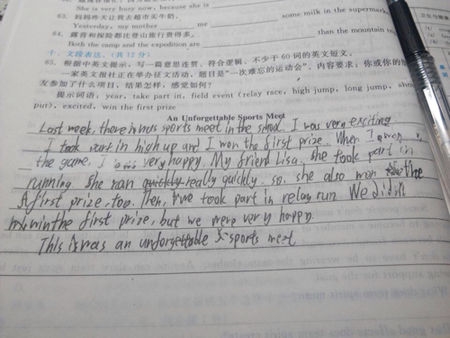 She is very busy now, because she is
63. 妈妈昨天让我去超市买牛奶。
Yesterday, my mother me some milk in the supermark
64. 露营和探险都比登山旅行费得多。
Both the camp and the expedition are than the mountain to
十、文段表达。(共12分)
65. 根据中英文提示,写一篇意思连贯、符合逻辑、不少于60词的英文短文。
一家英文报社正在举办征文活动,题目是“一次难忘的运动会”,内容要求:你或你的
友参加了什么项目,结果怎样,感觉如何?
提示词语:year, take part in, field event (relay race, high jump, long jump, sh
put), excited, win the first prize
An Unforgettable Sports Meet
Last week, there was sports meet in the school. I was very exciting
I took part in high up and I won the first prize. When I
the game, I was very happy. My friend Lisa, she took part in
running She ran really quickly. so, she also won the
first prize, too. Then, we took part in relay run We didn
win the first prize, but we were very happy
This was an unforgettable sports meet